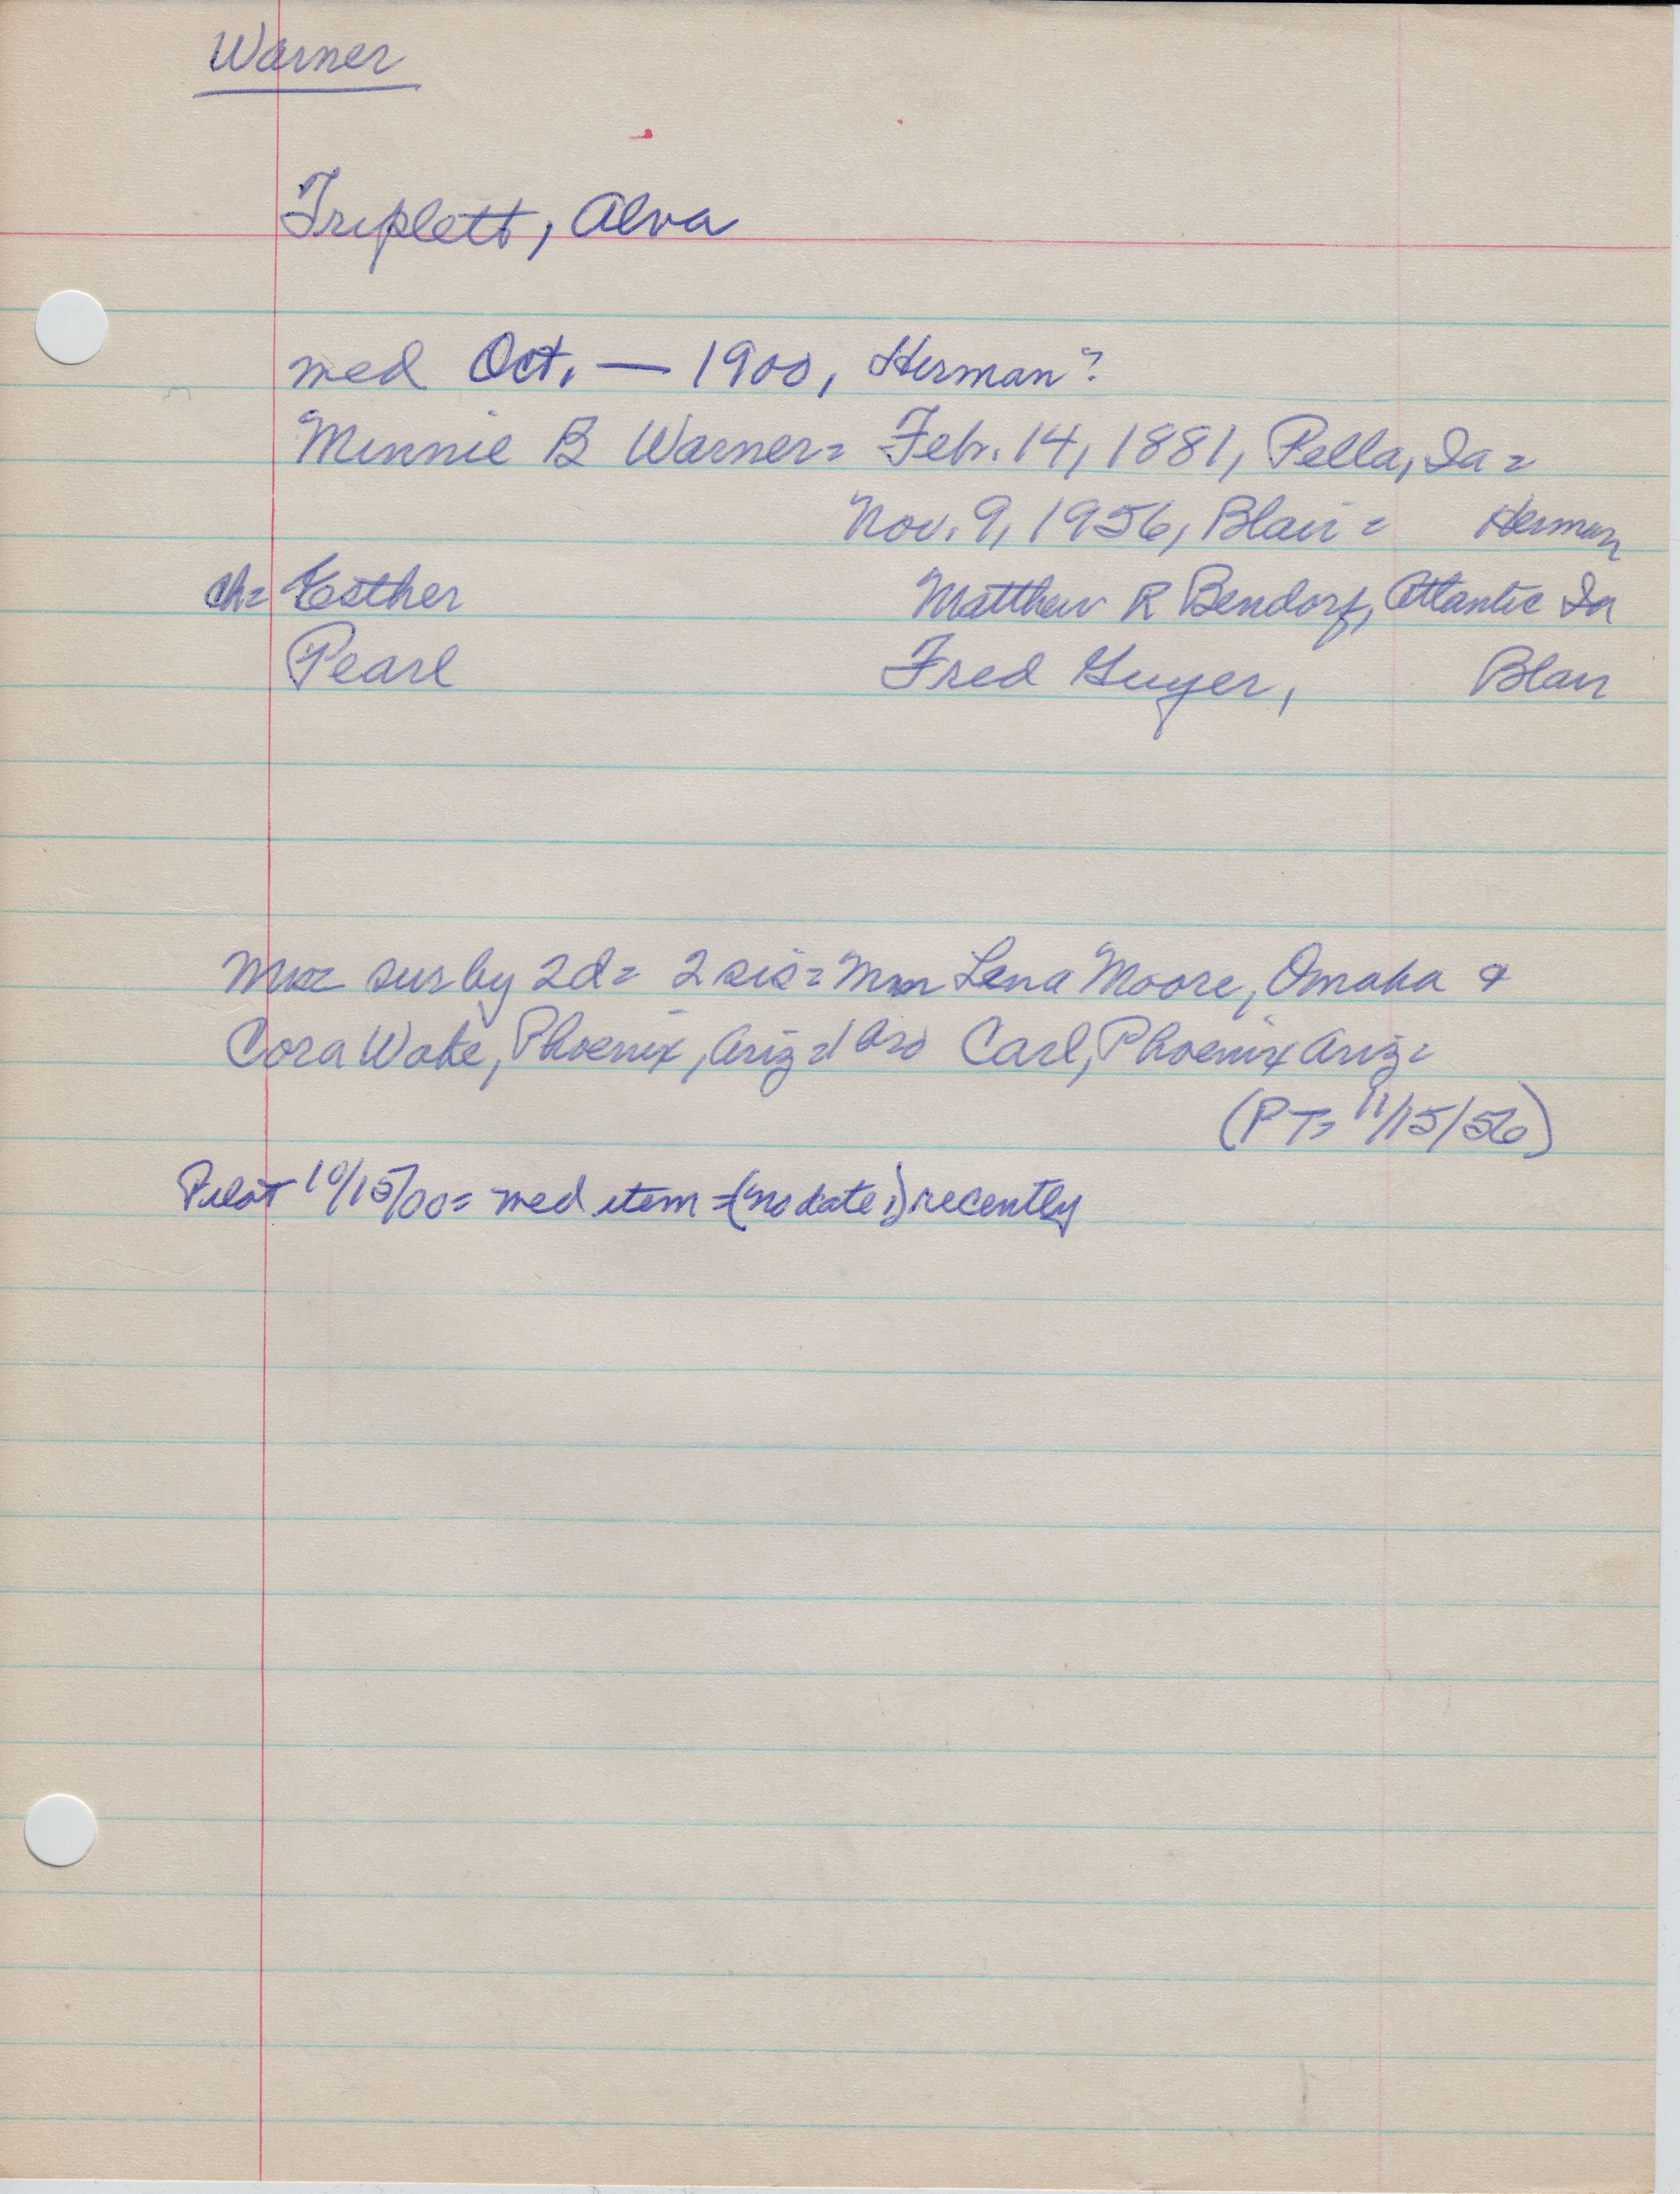 Warner
Triplett, Alva
med Oct. — 1900, Herman?
Minnie B Warner= Feb. 14, 1881, Pella, Ia=
Nov. 9, 1956, Blair= Herman
ch= Esther Matthew R Bendorf, Atlantic Ia
Pearl Fred Guyer, Blair
sur by 2d= 2 sis= Mrs Lena Moore, Omaha &
Cora Wake, Phoenix, Ariz=1 bro Carl, Phoenix Ariz=
(PT= 11/15/56)
Pilot 10/15/00= med item =(no date,) recently